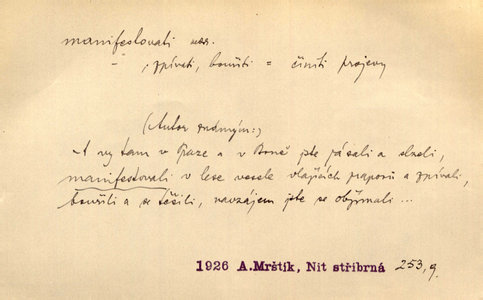 manifestovati ndr.
– , zpívati, bouřiti = činiti projevy
(Autor známým:)
A vy tam v Praze a v Brně jste jásali a slzeli,
manifestovali v lese vesele vlajících praporů a zpívali,
bouřili a se těšili, navzájem jste se objímali ...
1926 A. Mrštík, Nit stříbrná 253, 9.